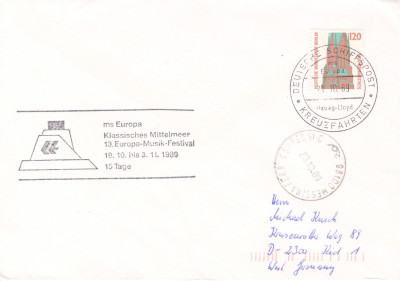 120
DEUTSCHE SCHIFFSPOST
Europa
10.89
Hapag-Lloyd
KREUZFAHRTEN
ms Europa
Klassisches Mittelmeer
13. Europa-Musik-Festival
19. 10. bis 3. 11. 1989
15 Tage
98100 MESSINA
Herrn
Michael
Weg 89
D-2300 Kiel 1
West Germany